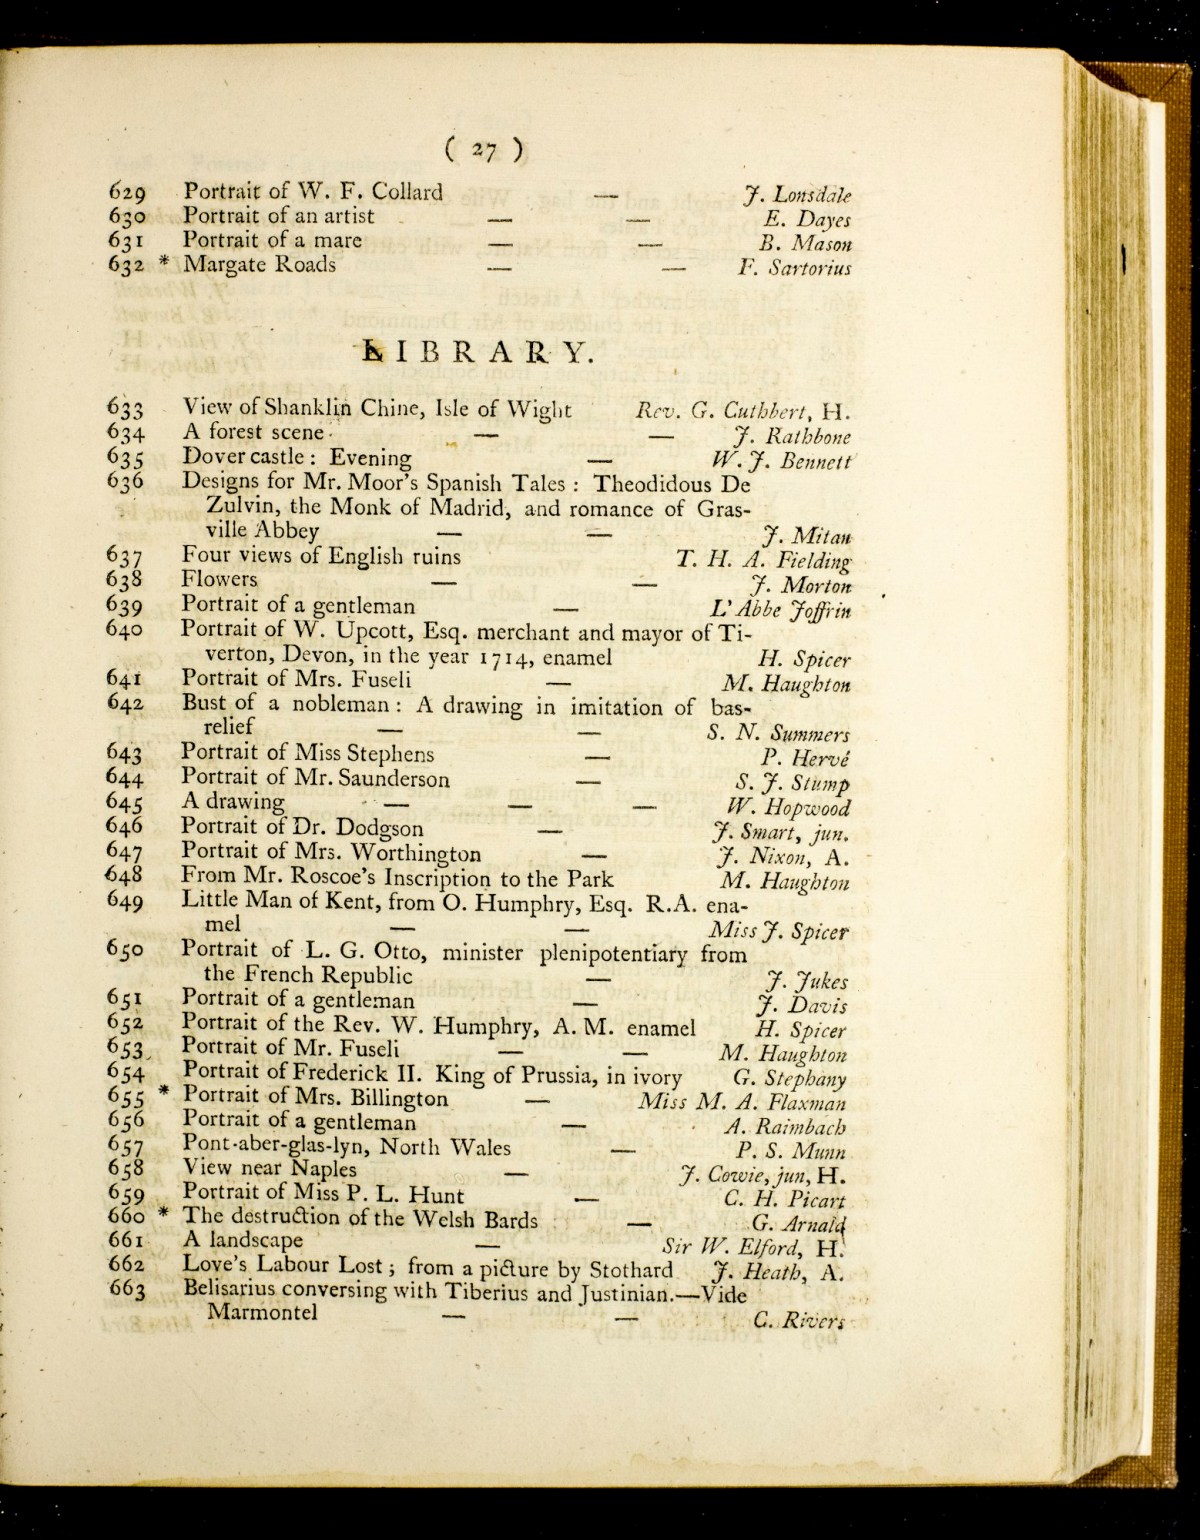 ( 27 )
629 Portrait of W. F. Collard — J. Lonsdale
630 Portrait of an artist — — E. Dayes
631 Portrait of a mare — — B. Mason
632 * Margate Roads — — F. Sartorius
LIBRARY.
633 View of Shanklin Chine, Isle of Wight Rev. G. Cuthbert, H.
634 A forest scene — — J. Rathbone
635 Dover castle : Evening — W. J. Bennett
636 Designs for Mr. Moor's Spanish Tales : Theodidous De
Zulvin, the Monk of Madrid, and romance of Gras-
ville Abbey — — J. Mitan
637 Four views of English ruins T. H. A. Fielding
638 Flowers — — J. Morton
639 Portrait of a gentleman — L'Abbe Joffrin
640 Portrait of W. Upcott, Esq. merchant and mayor of Ti-
verton, Devon, in the year 1714, enamel H. Spicer
641 Portrait of Mrs. Fuseli — M. Haughton
642 Bust of a nobleman : A drawing in imitation of bas-
relief — — S. N. Summers
643 Portrait of Miss Stephens — P. Hervé
644 Portrait of Mr. Saunderson — S. J. Stump
645 A drawing — — — W. Hopwood
646 Portrait of Dr. Dodgson — J. Smart, jun.
647 Portrait of Mrs. Worthington — J. Nixon, A.
648 From Mr. Roscoe's Inscription to the Park M. Haughton
649 Little Man of Kent, from O. Humphry, Esq. R.A. ena-
mel — — Miss J. Spicer
650 Portrait of L. G. Otto, minister plenipotentiary from
the French Republic — J. Jukes
651 Portrait of a gentleman — J. Davis
652 Portrait of the Rev. W. Humphry, A. M. enamel H. Spicer
653 Portrait of Mr. Fuseli — — M. Haughton
654 Portrait of Frederick II. King of Prussia, in ivory G. Stephany
655 * Portrait of Mrs. Billington — Miss M. A. Flaxman
656 Portrait of a gentleman — A. Raimbach
657 Pont-aber-glas-lyn, North Wales — P. S. Munn
658 View near Naples — J. Cowie, jun, H.
659 Portrait of Miss P. L. Hunt — C. H. Picart
660 * The destruction of the Welsh Bards — G. Arnald
661 A landscape — Sir W. Elford, H.
662 Love's Labour Lost ; from a picture by Stothard J. Heath, A.
663 Belisarius conversing with Tiberius and Justinian.—Vide
Marmontel — — C. Rivers